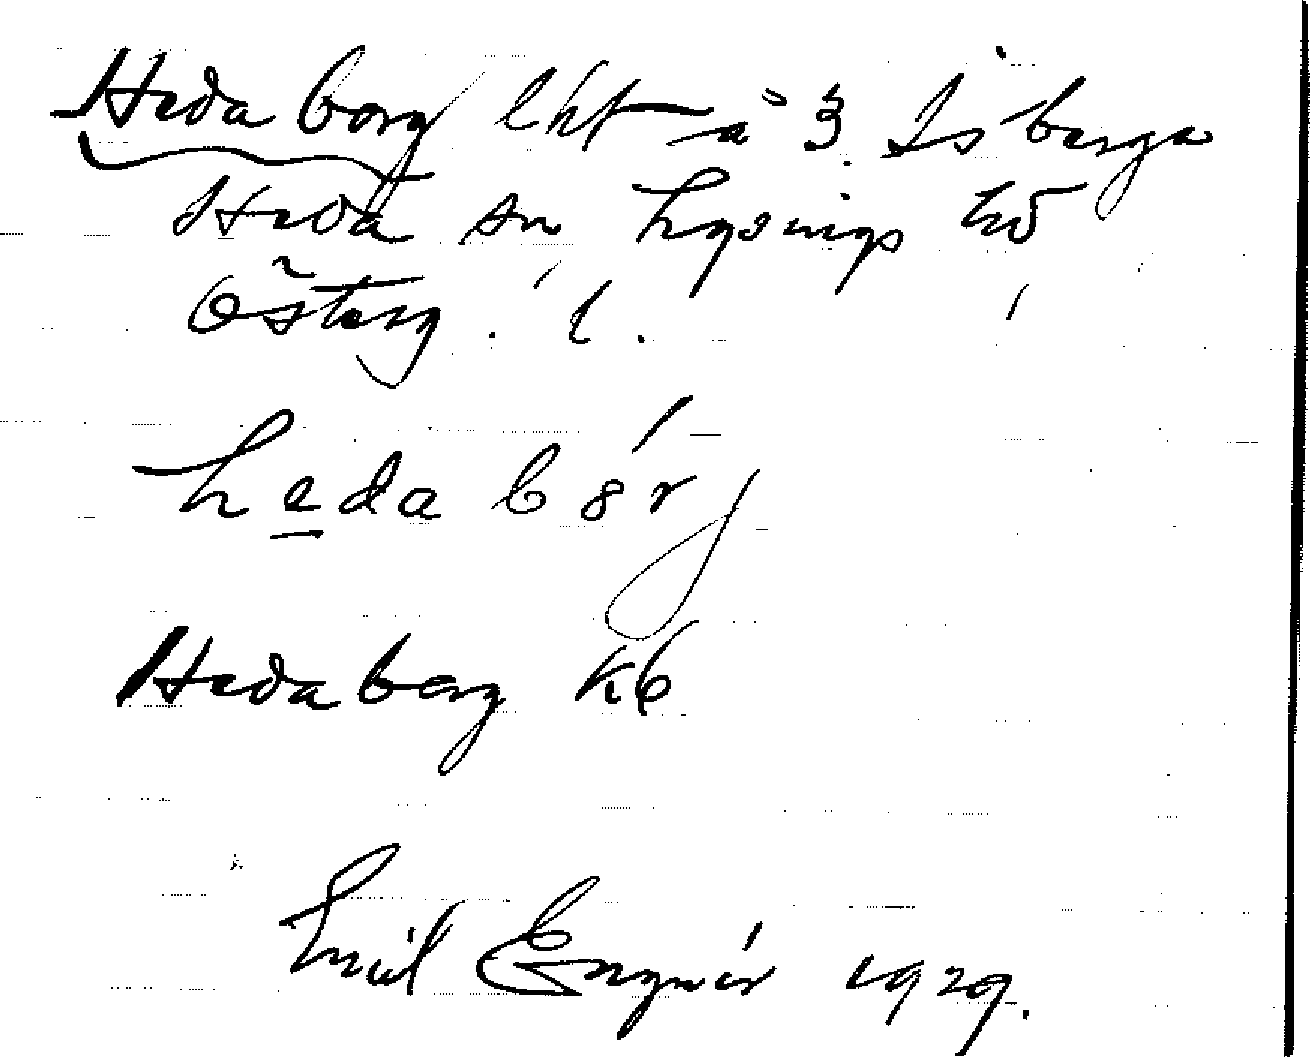 Hedaborg lht å 3. Isberga
Heda sn Lysings hd
Österg. l.
hedabórj
Hedaborg kb
Emil Engnér 1929.